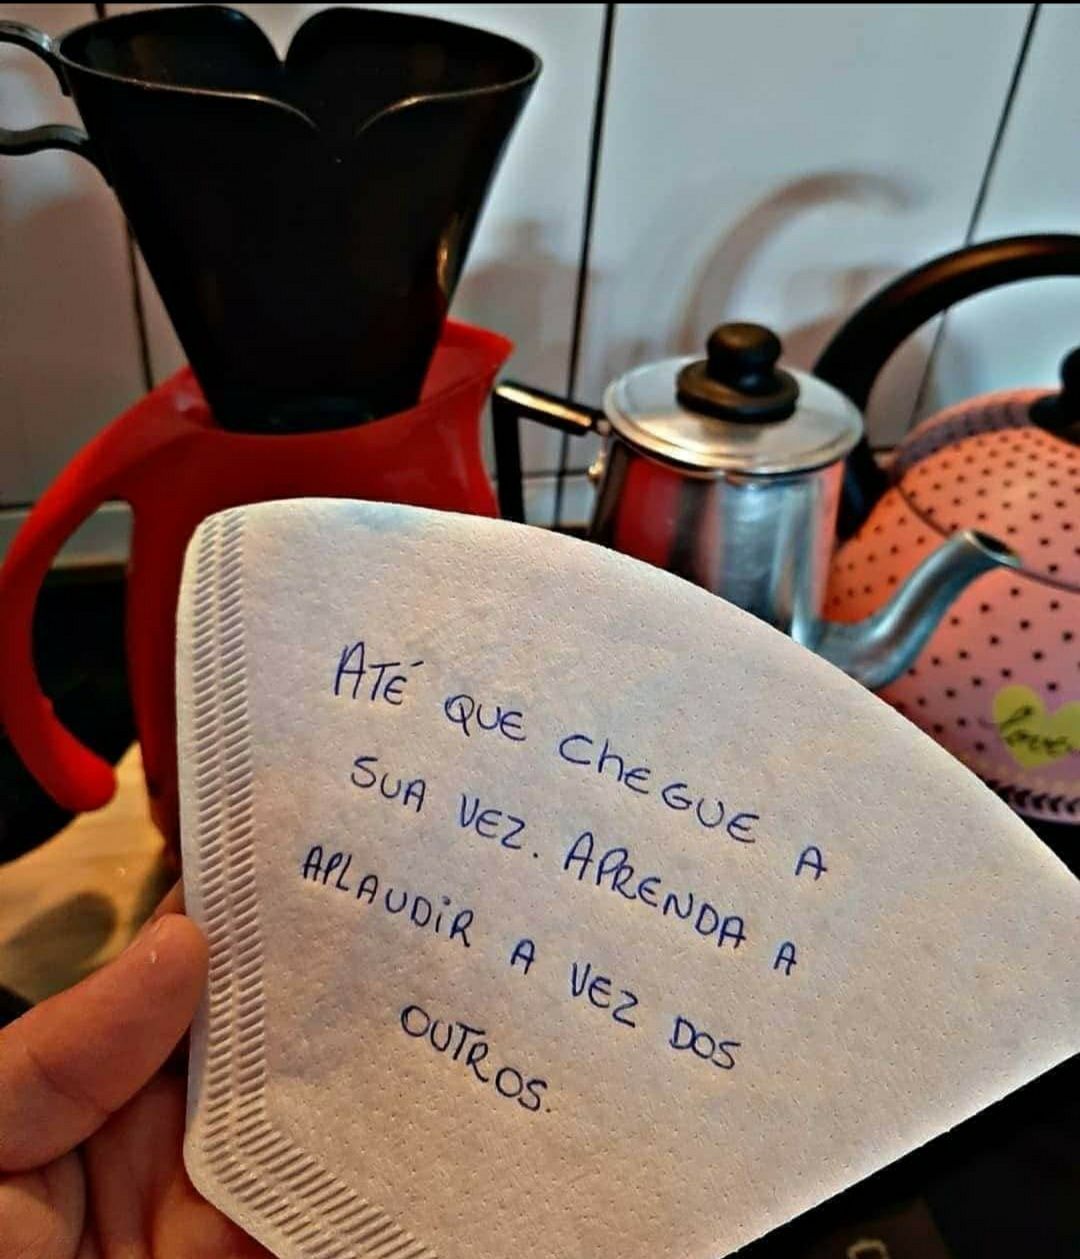 ATÉ QUE CHEGUE A
SUA VEZ. APRENDA A
APLAUDIR A VEZ DOS
OUTROS.
love